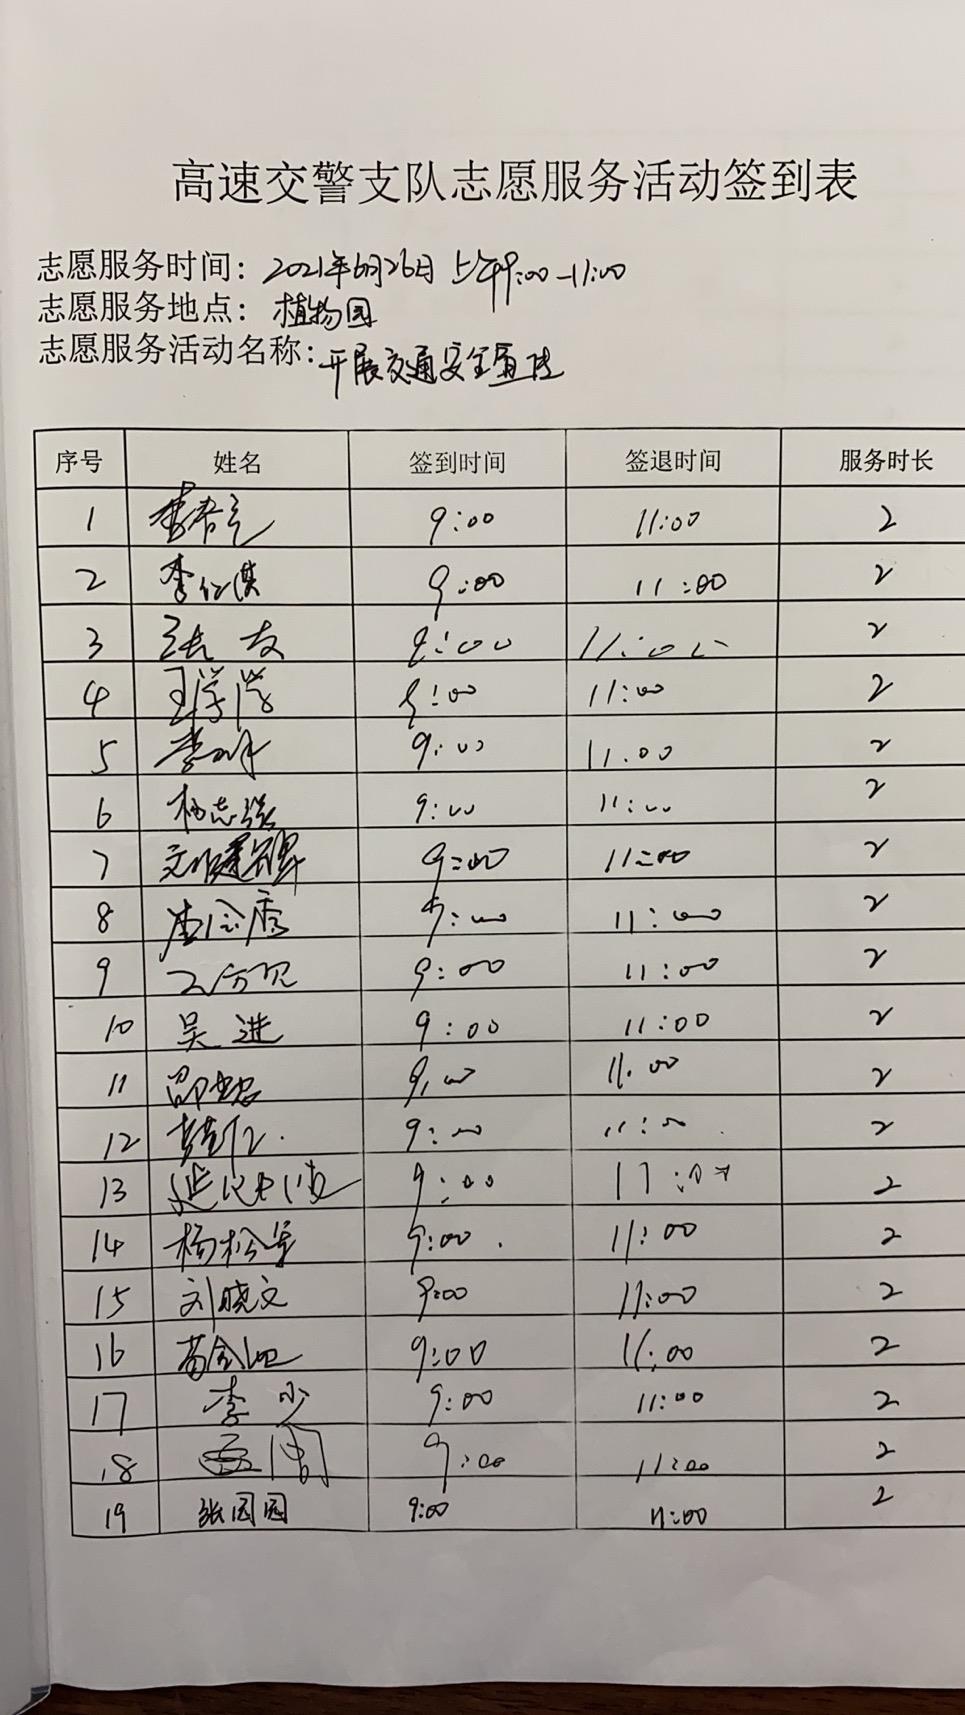 高速交警支队志愿服务活动签到表
志愿服务时间：2021年6月26日上午9:00-11:00
志愿服务地点：植物园
志愿服务活动名称：开展交通安全宣传
序号 姓名 签到时间 签退时间 服务时长
1 9:00 11:00 2
2 9:00 11:00 2
3 9:00 11:00 2
4 9:00 11:00 2
5 9:00 11.00 2
6 杨志强 9:00 11:00 2
7 9:00 11:00 2
8 9:00 11:00 2
9 9:00 11:00 2
10 吴进 9:00 11:00 2
11 9:00 11.00 2
12 9:00 11:00 2
13 9:00 11:00 2
14 杨松 9:00 11:00 2
15 刘晓文 9:00 11:00 2
16 9:00 11:00 2
17 李少 9:00 11:00 2
18 9:00 11:00 2
19 张园园 9:00 11:00 2